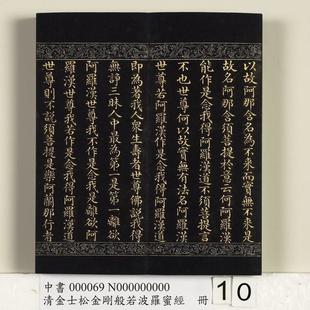 以故阿那含名為不來而實無不來是
故名阿那含須菩提於意云何阿羅漢
能作是念我得阿羅漢道不須菩提言
不也世尊何以故實無有法名阿羅漢
世尊若阿羅漢作是念我得阿羅漢道
即為著我人眾生壽者世尊佛說我得
無諍三昧人中最為第一是第一離欲
阿羅漢世尊我不作是念我是離欲阿
羅漢世尊我若作是念我得阿羅漢道
世尊則不說須菩提是樂阿蘭那行者
中書 000069 N000000000
清金士松金剛般若波羅蜜經 冊 10